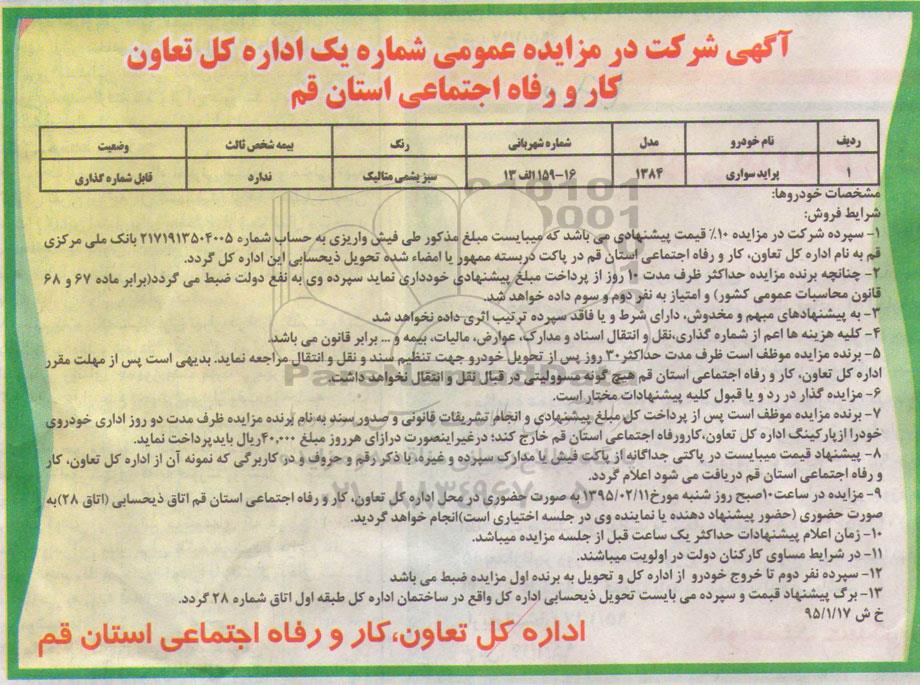 آگهی شرکت در مزایده عمومی شماره یک اداره کل تعاون
کار و رفاه اجتماعی استان قم
ردیف نام خودرو مدل شماره شهربانی رنگ بیمه شخص ثالث وضعیت
۱ پراید سواری ۱۳۸۴ ۱۶–۱۵۹ الف ۱۳ سبز یشمی متالیک ندارد قابل شماره گذاری
مشخصات خودروها:
شرایط فروش:
۱- سپرده شرکت در مزایده ۱۰٪ قیمت پیشنهادی می باشد که میبایست مبلغ مذکور طی فیش واریزی به حساب شماره ۲۱۷۱۹۱۳۵۰۴۰۰۵ بانک ملی مرکزی
قم به نام اداره کل تعاون، کار و رفاه اجتماعی استان قم در پاکت دربسته ممهور یا امضاء شده تحویل ذیحسابی این اداره کل گردد.
۲- چنانچه برنده مزایده حداکثر ظرف مدت ۱۰ روز از پرداخت مبلغ پیشنهادی خودداری نماید سپرده وی به نفع دولت ضبط می گردد(برابر ماده ۶۷ و ۶۸
قانون محاسبات عمومی کشور) و امتیاز به نفر دوم و سوم داده خواهد شد.
۳- به پیشنهادهای مبهم و مخدوش، دارای شرط و یا فاقد سپرده ترتیب اثری داده نخواهد شد
۴- کلیه هزینه ها اعم از شماره گذاری،نقل و انتقال اسناد و مدارک، عوارض، مالیات، بیمه و ... برابر قانون می باشد.
۵- برنده مزایده موظف است ظرف مدت حداکثر۳۰ روز پس از تحویل خودرو جهت تنظیم سند و نقل و انتقال مراجعه نماید. بدیهی است پس از مهلت مقرر
اداره کل تعاون، کار و رفاه اجتماعی استان قم هیچ گونه مسوولیتی در قبال نقل و انتقال نخواهد داشت.
۶- مزایده گذار در رد و یا قبول کلیه پیشنهادات مختار است.
۷- برنده مزایده موظف است پس از پرداخت کل مبلغ پیشنهادی و انجام تشریفات قانونی و صدور سند به نام برنده مزایده ظرف مدت دو روز اداری خودروی
خودرا ازپارکینگ اداره کل تعاون،کارورفاه اجتماعی استان قم خارج کند؛ درغیراینصورت درازای هرروز مبلغ ۴۰,۰۰۰ریال بایدپرداخت نماید.
۸- پیشنهاد قیمت میبایست در پاکتی جداگانه از پاکت فیش یا مدارک سپرده و غیره، با ذکر رقم و حروف و در کاربرگی که نمونه آن از اداره کل تعاون، کار
و رفاه اجتماعی استان قم دریافت می شود اعلام گردد.
۹- مزایده در ساعت۱۰صبح روز شنبه مورخ۱۳۹۵/۰۲/۱۱ به صورت حضوری در محل اداره کل تعاون، کار و رفاه اجتماعی استان قم اتاق ذیحسابی (اتاق ۲۸)به
صورت حضوری (حضور پیشنهاد دهنده یا نماینده وی در جلسه اختیاری است)انجام خواهد گردید.
۱۰- زمان اعلام پیشنهادات حداکثر یک ساعت قبل از جلسه مزایده میباشد.
۱۱- در شرایط مساوی کارکنان دولت در اولویت میباشند.
۱۲- سپرده نفر دوم تا خروج خودرو از اداره کل و تحویل به برنده اول مزایده ضبط می باشد
۱۳- برگ پیشنهاد قیمت و سپرده می بایست تحویل ذیحسابی اداره کل واقع در ساختمان اداره کل طبقه اول اتاق شماره ۲۸ گردد.
خ ش ۹۵/۱/۱۷
اداره کل تعاون،کار و رفاه اجتماعی استان قم